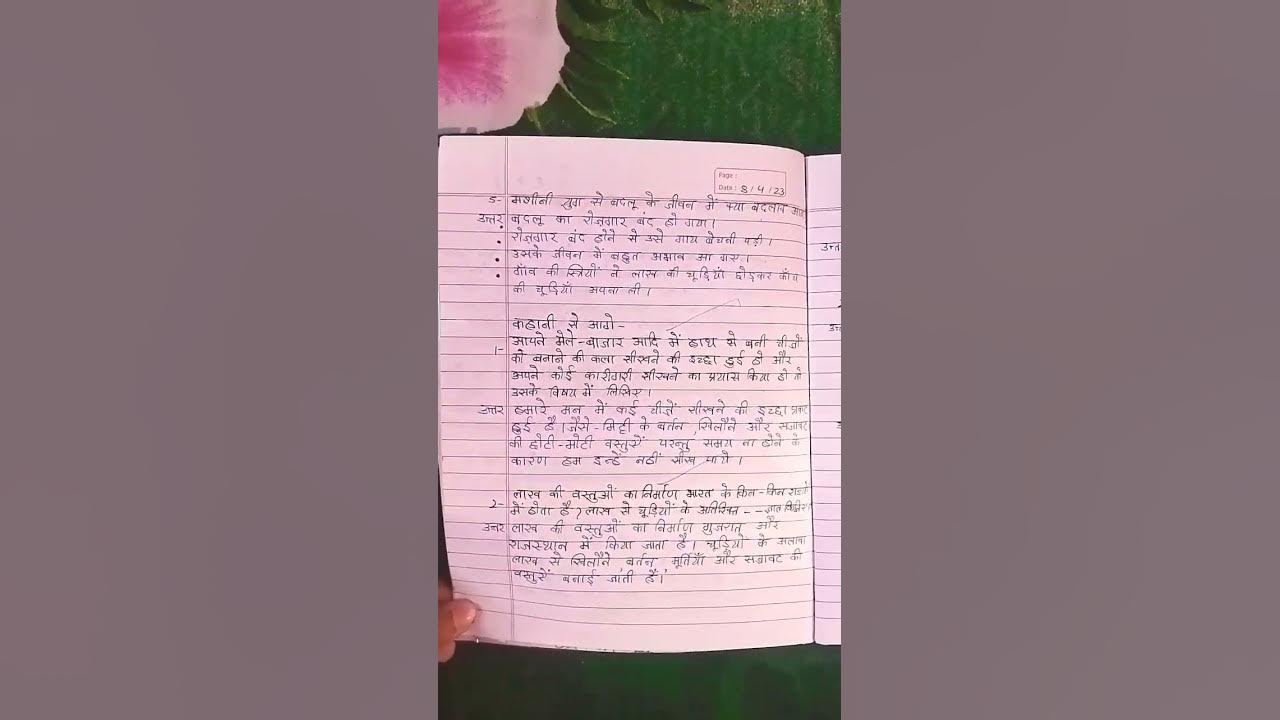 Page :
Date : 8/4/23
5- मशीनी युग से बदलू के जीवन में क्या बदलाव आए
उत्तर बदलू का रोज़गार बंद हो गया।
• रोज़गार बंद होने से उसे गाय बेचनी पड़ी।
• उसके जीवन में बहुत अभाव आ गए।
• गाँव की स्त्रियों ने लाख की चूड़ियाँ छोड़कर काँच
की चूड़ियाँ अपना ली।
कहानी से आगे -
आपने मेले - बाजार आदि में हाथ से बनी चीज़ों
1- को बनाने की कला सीखने की इच्छा हुई हो और
आपने कोई कारीगरी सीखने का प्रयास किया हो तो
उसके विषय में लिखिए।
उत्तर हमारे मन में कई चीज़ें सीखने की इच्छा प्रकट
हुई है। जैसे - मिट्टी के बर्तन, खिलौने और सजावट
की छोटी - मोटी वस्तुएँ परन्तु समय ना होने के
कारण हम इन्हें नहीं सीख पाये।
लाख की वस्तुओं का निर्माण भारत के किन - किन राज्यों
2- में होता है? लाख से चूड़ियों के अतिरिक्त - - ज्ञात कीजिए।
उत्तर लाख की वस्तुओं का निर्माण गुजरात और
राजस्थान में किया जाता है। चूड़ियों के अलावा
लाख से खिलौने, बर्तन, मूर्तियाँ और सजावट की
वस्तुएँ बनाई जाती हैं।